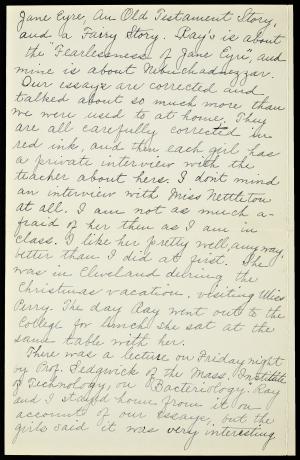 Jane Eyre, An Old Testament Story,
and a Faery Story. Ray's is about
the "Fearlessness of Jane Eyre," and
mine is about Nebuchadnezzar.
Our essays are corrected and
talked about so much more than
we were used to at home. They
are all carefully corrected in
red ink, and then each girl has
a private interview with the
teacher about hers. I dont mind
an interview with Miss Nettleton
at all. I am not as much a-
fraid of her then as I am in
class. I like her pretty well, anyway,
better than I did at first. She
was in Cleveland during the
Christmas vacation, visiting Miss
Perry. The day Ray went out to the
College for lunch she sat at the
same table with her.
There was a lecture on Friday night
by Prof. Sedgwick of the Mass. Institute
of Technology, on "Bacteriology." Ray
and I stayed home from it on
account of our essays, but the
girls said it was very interesting